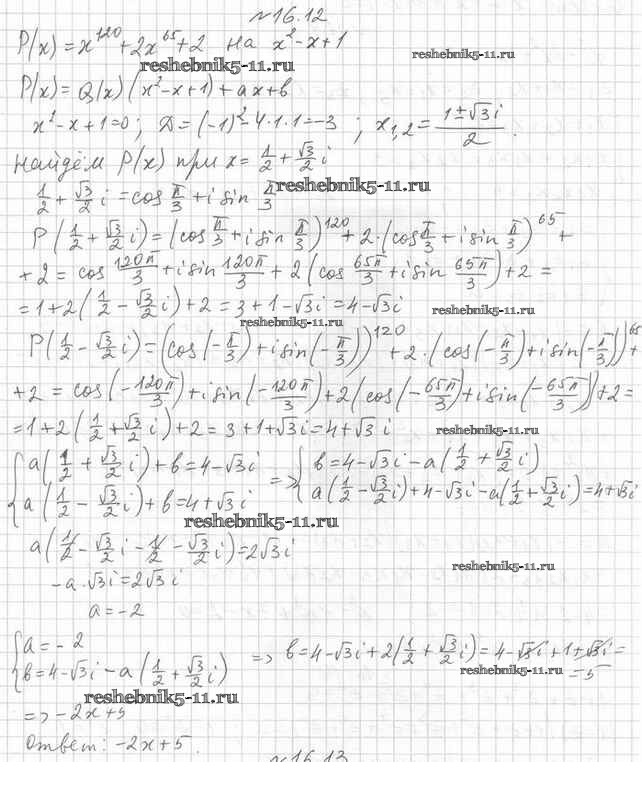 №16.12
P(x) = x^120 + 2x^65 + 2 на x² - x + 1
reshebnik5-11.ru
reshebnik5-11.ru
P(x) = Q(x)(x² - x + 1) + ax + b
x² - x + 1 = 0; D = (-1)² - 4·1·1 = -3; x₁,₂ = (1 ± √3i)/2.
найдём P(x) при x = 1/2 + √3/2 i
reshebnik5-11.ru
1/2 + √3/2 i = cos π/3 + i sin π/3
P(1/2 + √3/2 i) = (cos π/3 + i sin π/3)^120 + 2·(cos π/3 + i sin π/3)^65 +
+ 2 = cos 120π/3 + i sin 120π/3 + 2(cos 65π/3 + i sin 65π/3) + 2 =
= 1 + 2(1/2 - √3/2 i) + 2 = 3 + 1 - √3i = 4 - √3i
reshebnik5-11.ru
reshebnik5-11.ru
P(1/2 - √3/2 i) = (cos(-π/3) + i sin(-π/3))^120 + 2·(cos(-π/3) + i sin(-π/3))^65 +
+ 2 = cos(-120π/3) + i sin(-120π/3) + 2(cos(-65π/3) + i sin(-65π/3)) + 2 =
= 1 + 2(1/2 + √3/2 i) + 2 = 3 + 1 + √3i = 4 + √3i
reshebnik5-11.ru
{ a(1/2 + √3/2 i) + b = 4 - √3i => { b = 4 - √3i - a(1/2 + √3/2 i)
a(1/2 - √3/2 i) + b = 4 + √3i a(1/2 - √3/2 i) + 4 - √3i - a(1/2 + √3/2 i) = 4 + √3i
reshebnik5-11.ru
a(1/2 - √3/2 i - 1/2 - √3/2 i) = 2√3i
reshebnik5-11.ru
-a·√3i = 2√3i
a = -2
{ a = -2
b = 4 - √3i - a(1/2 + √3/2 i) => b = 4 - √3i + 2(1/2 + √3/2 i) = 4 - √3i + 1 + √3i =
= 5
reshebnik5-11.ru
reshebnik5-11.ru
=> -2x + 5
Ответ: -2x + 5.
№16.13